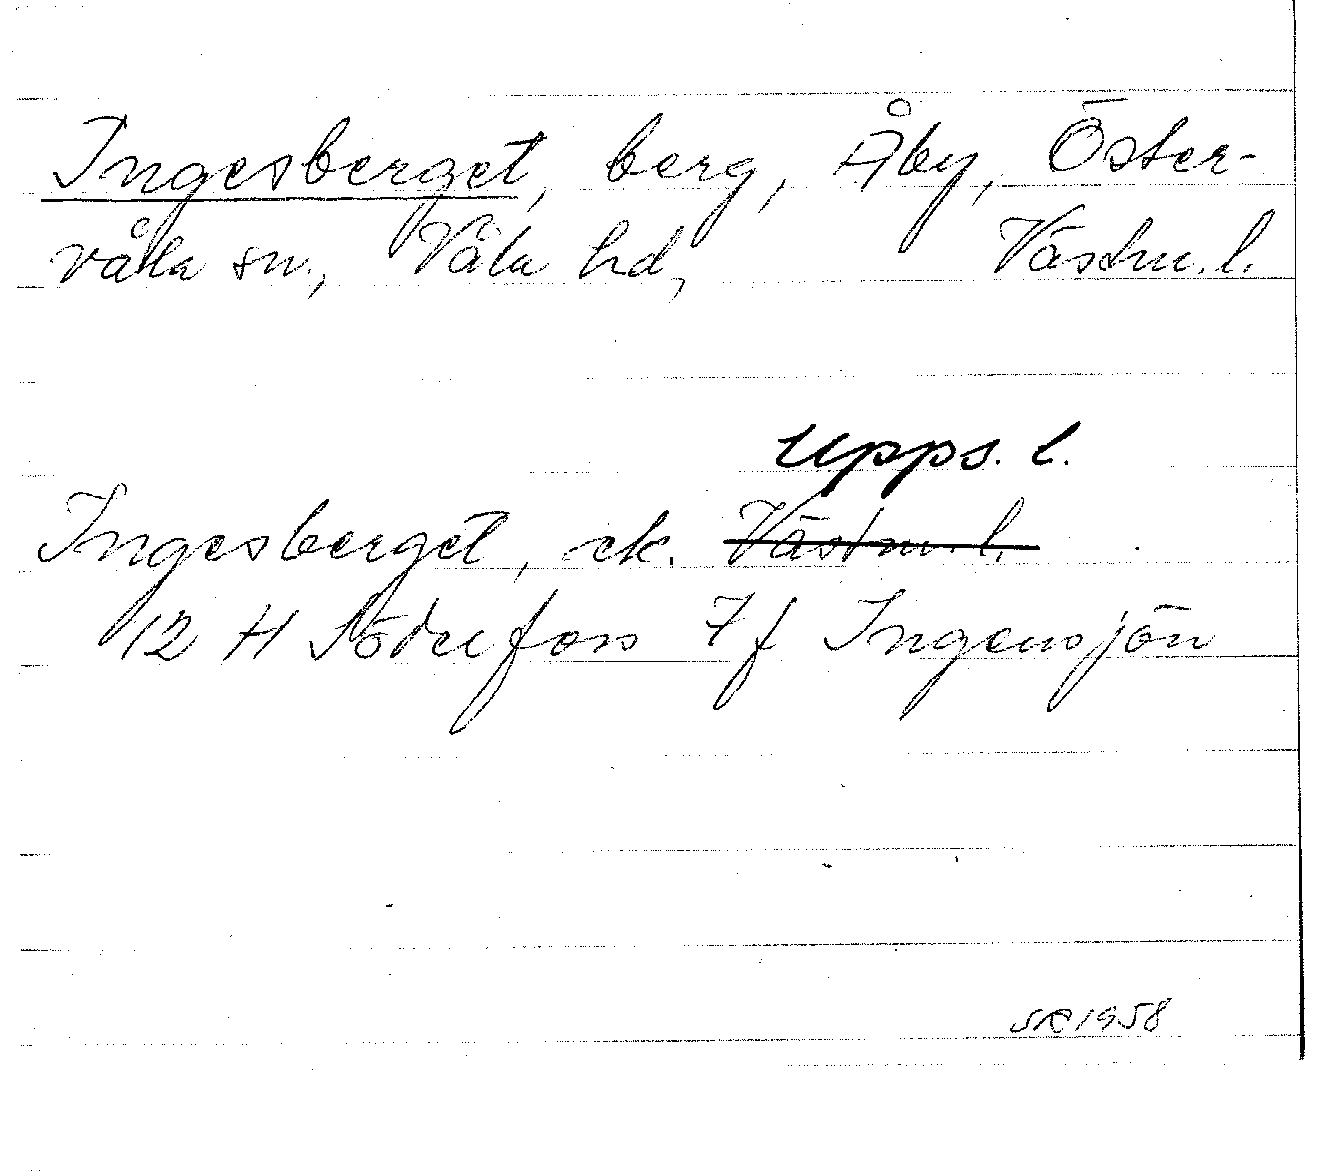 Ingesberget, berg, Åby, Öster-
våla sn., Våla hd, Västm. l.
Upps. l.
Ingesberget, ek. Västm. l.
12 H Söderfors 7 f Ingensjön
SR 1958